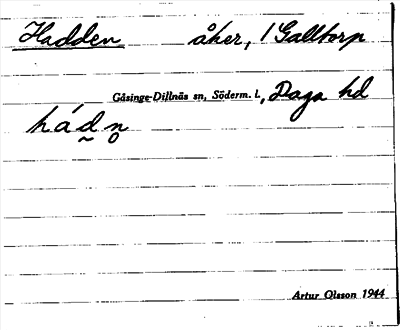 Hadden åker, 1 Galltorp
Gåsinge-Dillnäs sn, Söderm. l., Daga hd
hád̰n̥
Artur Olsson 1944